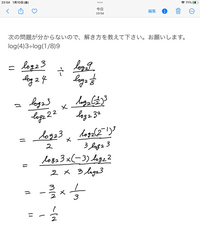 22:34 1月15日(金)
71%
今日
22:34
次の問題が分からないので、解き方を教えて下さい。お願いします。
log(4)3÷log(1/8)9
= log₂3 / log₂4 ÷ log₂9 / log₂ 1/8
= log₂3 / log₂2² × log₂(1/2)³ / log₂3²
= log₂3 / 2 × log₂(2⁻¹)³ / 3log₂3
= log₂3 × (-3)log₂2 / 2 × 3log₂3
= - 3/2 × 1/3
= - 1/2